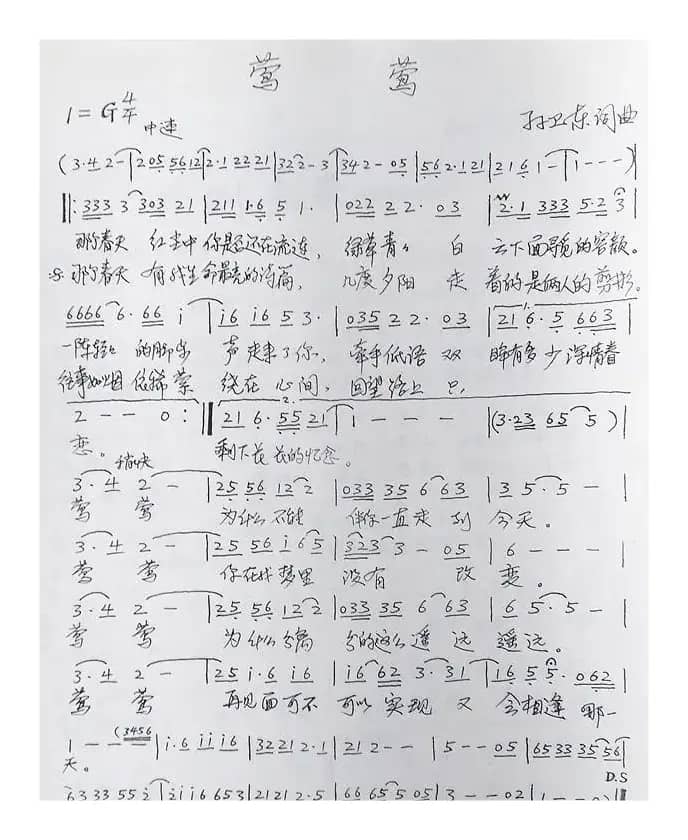 莺 莺
1=G 4/4 中速
孙卫东词曲
(3·4 2-|205 5612|2·1 22 21|322-3|342-05|56 2·1 21|216 1-|1---)
‖:333 3 303 21|211 1·6 5 1·|022 2 2· 03|2·1 333 5·2 3|
那个春天 红尘中你是否还在流连, 绿草青青 白 云下面寻觅的容颜。
那个春天 有我生命最亮的诗篇, 几度夕阳 走 着的是俩人的剪影。
6666 6·66 i|i6 i6 5 3·|035 2 2· 03|21 6·5 663|
一阵轻轻 的脚步 声走来了你, 牵手低语 双 眸有多少深情眷
往事如烟 依稀萦 绕在 心间, 回望路上 只,
2 - - 0:‖21 6·55 21|1 - - -|(3·23 65 5)|
恋。 剩下长长的怀念。
稍快
3·4 2 -|25 56 12 2|033 35 6 63|3 5·5 -|
莺 莺 为什么不能 伴你一直走 到 今天。
3·4 2 -|25 56 i 65|323 3 - 05|6 - - -|
莺 莺 你在我梦里 没有 改 变。
3·4 2 -|25 56 12 2|033 35 6 63|6 5·5 -|
莺 莺 为什么分离 分的这么遥 远 遥远。
3·4 2 -|25 i·6 i6|i6 62 3·31|16 5 5·062|
莺 莺 再见面可不 可以 实现 又 会相逢 哪一
1 - - -(3456|i·6 ii i6|32 21 2·1|21 2 - -|5 - - 05|65 33 35 56|
天。
D.S
63 33 55 2|2 i i6 653|21 21 2·5|66 65 5 05|3 - - 02|1 - - 0)